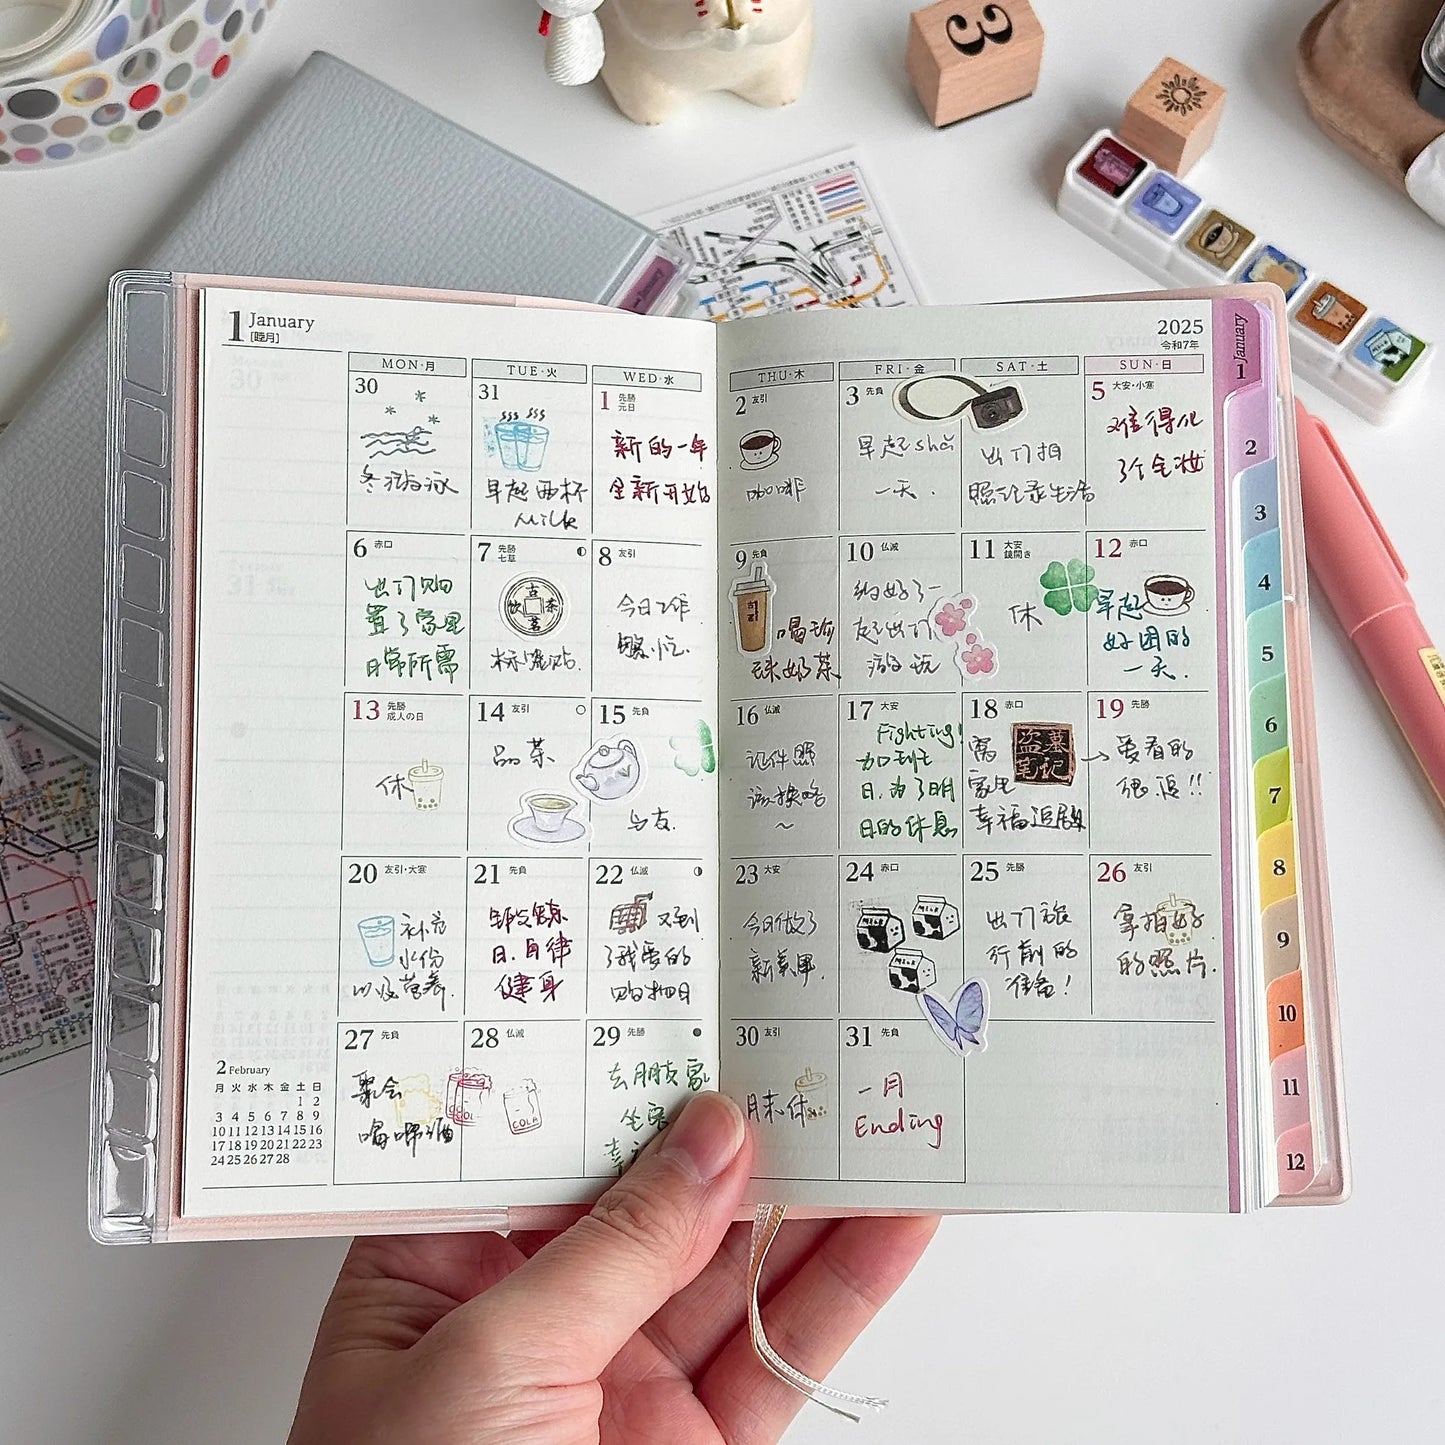 1 January
[睦月]
2025
令和7年
MON·月
TUE·火
WED·水
THU·木
FRI·金
SAT·土
SUN·日
30
冬游泳
31
早起两杯
Milk
1 先勝
元日
新的一年
全新开始
2 友引
咖啡
3 先負
早起
一天.
出门拍
照记录生活
5 大安·小寒
难得化
了个全妆
6 赤口
出门购
置了家里
日常所需
7 先勝
七草
古
飲 茶
茗
8 友引
今日工作
繁忙.
9 先負
喝珍
珠奶茶
10 仏滅
约好了一
起出门
游玩
11 大安
鏡開き
休
12 赤口
早起
好困的
一天.
13 先勝
成人の日
休
14 友引
品茶
15 先負
与友.
16 仏滅
证件照
该换咯
~
17 大安
Fighting!
加班
日.为了明
日的休息
18 赤口
窝
家里
幸福追剧
盗墓
笔记
19 先勝
→爱看的
很.逗!!
20 友引·大寒
补充
水份
以及营养.
21 先負
锻炼
日.自律
健身
22 仏滅
又到
了我爱的
购物日
23 大安
今日做了
新美甲.
24 赤口
MILK
MILK
MILK
25 先勝
出门旅
行前的
准备!
26 友引
拿拍好
的照片.
27 先負
聚会
喝啤酒
28 仏滅
COLA
COLA
29 先勝
去朋友家
坐客
幸
30 友引
月末休
31 先負
一月
Ending
2 February
月 火 水 木 金 土 日
1 2
3 4 5 6 7 8 9
10 11 12 13 14 15 16
17 18 19 20 21 22 23
24 25 26 27 28
January
1
2
3
4
5
6
7
8
9
10
11
12
3